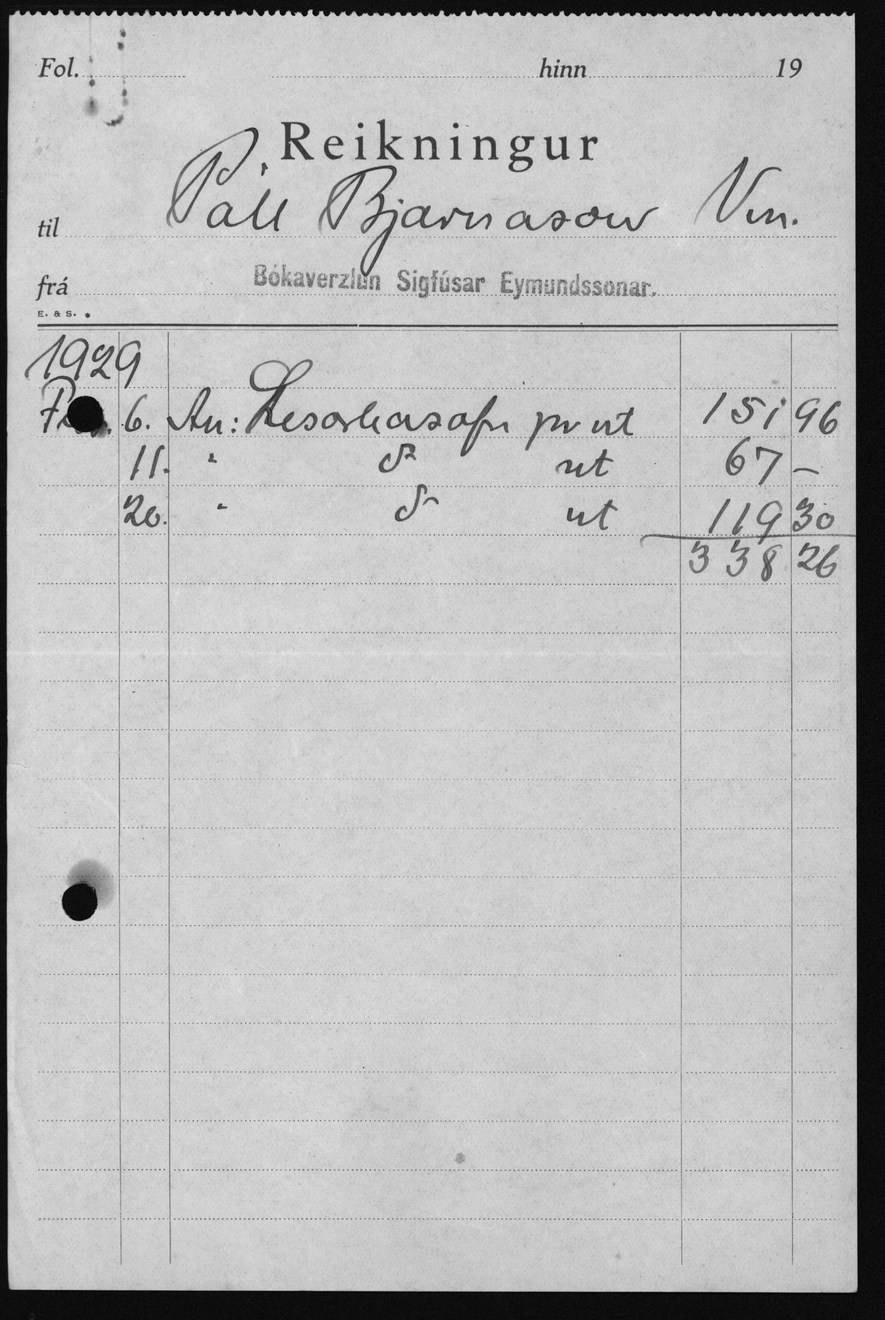 Fol. hinn 19
Reikningur
til Páll Bjarnason Vm.
frá Bókaverzlun Sigfúsar Eymundssonar.
E. & S.
1929
6. An: 151 96
11. " do út 67 –
20. " do út 119 30
338 26